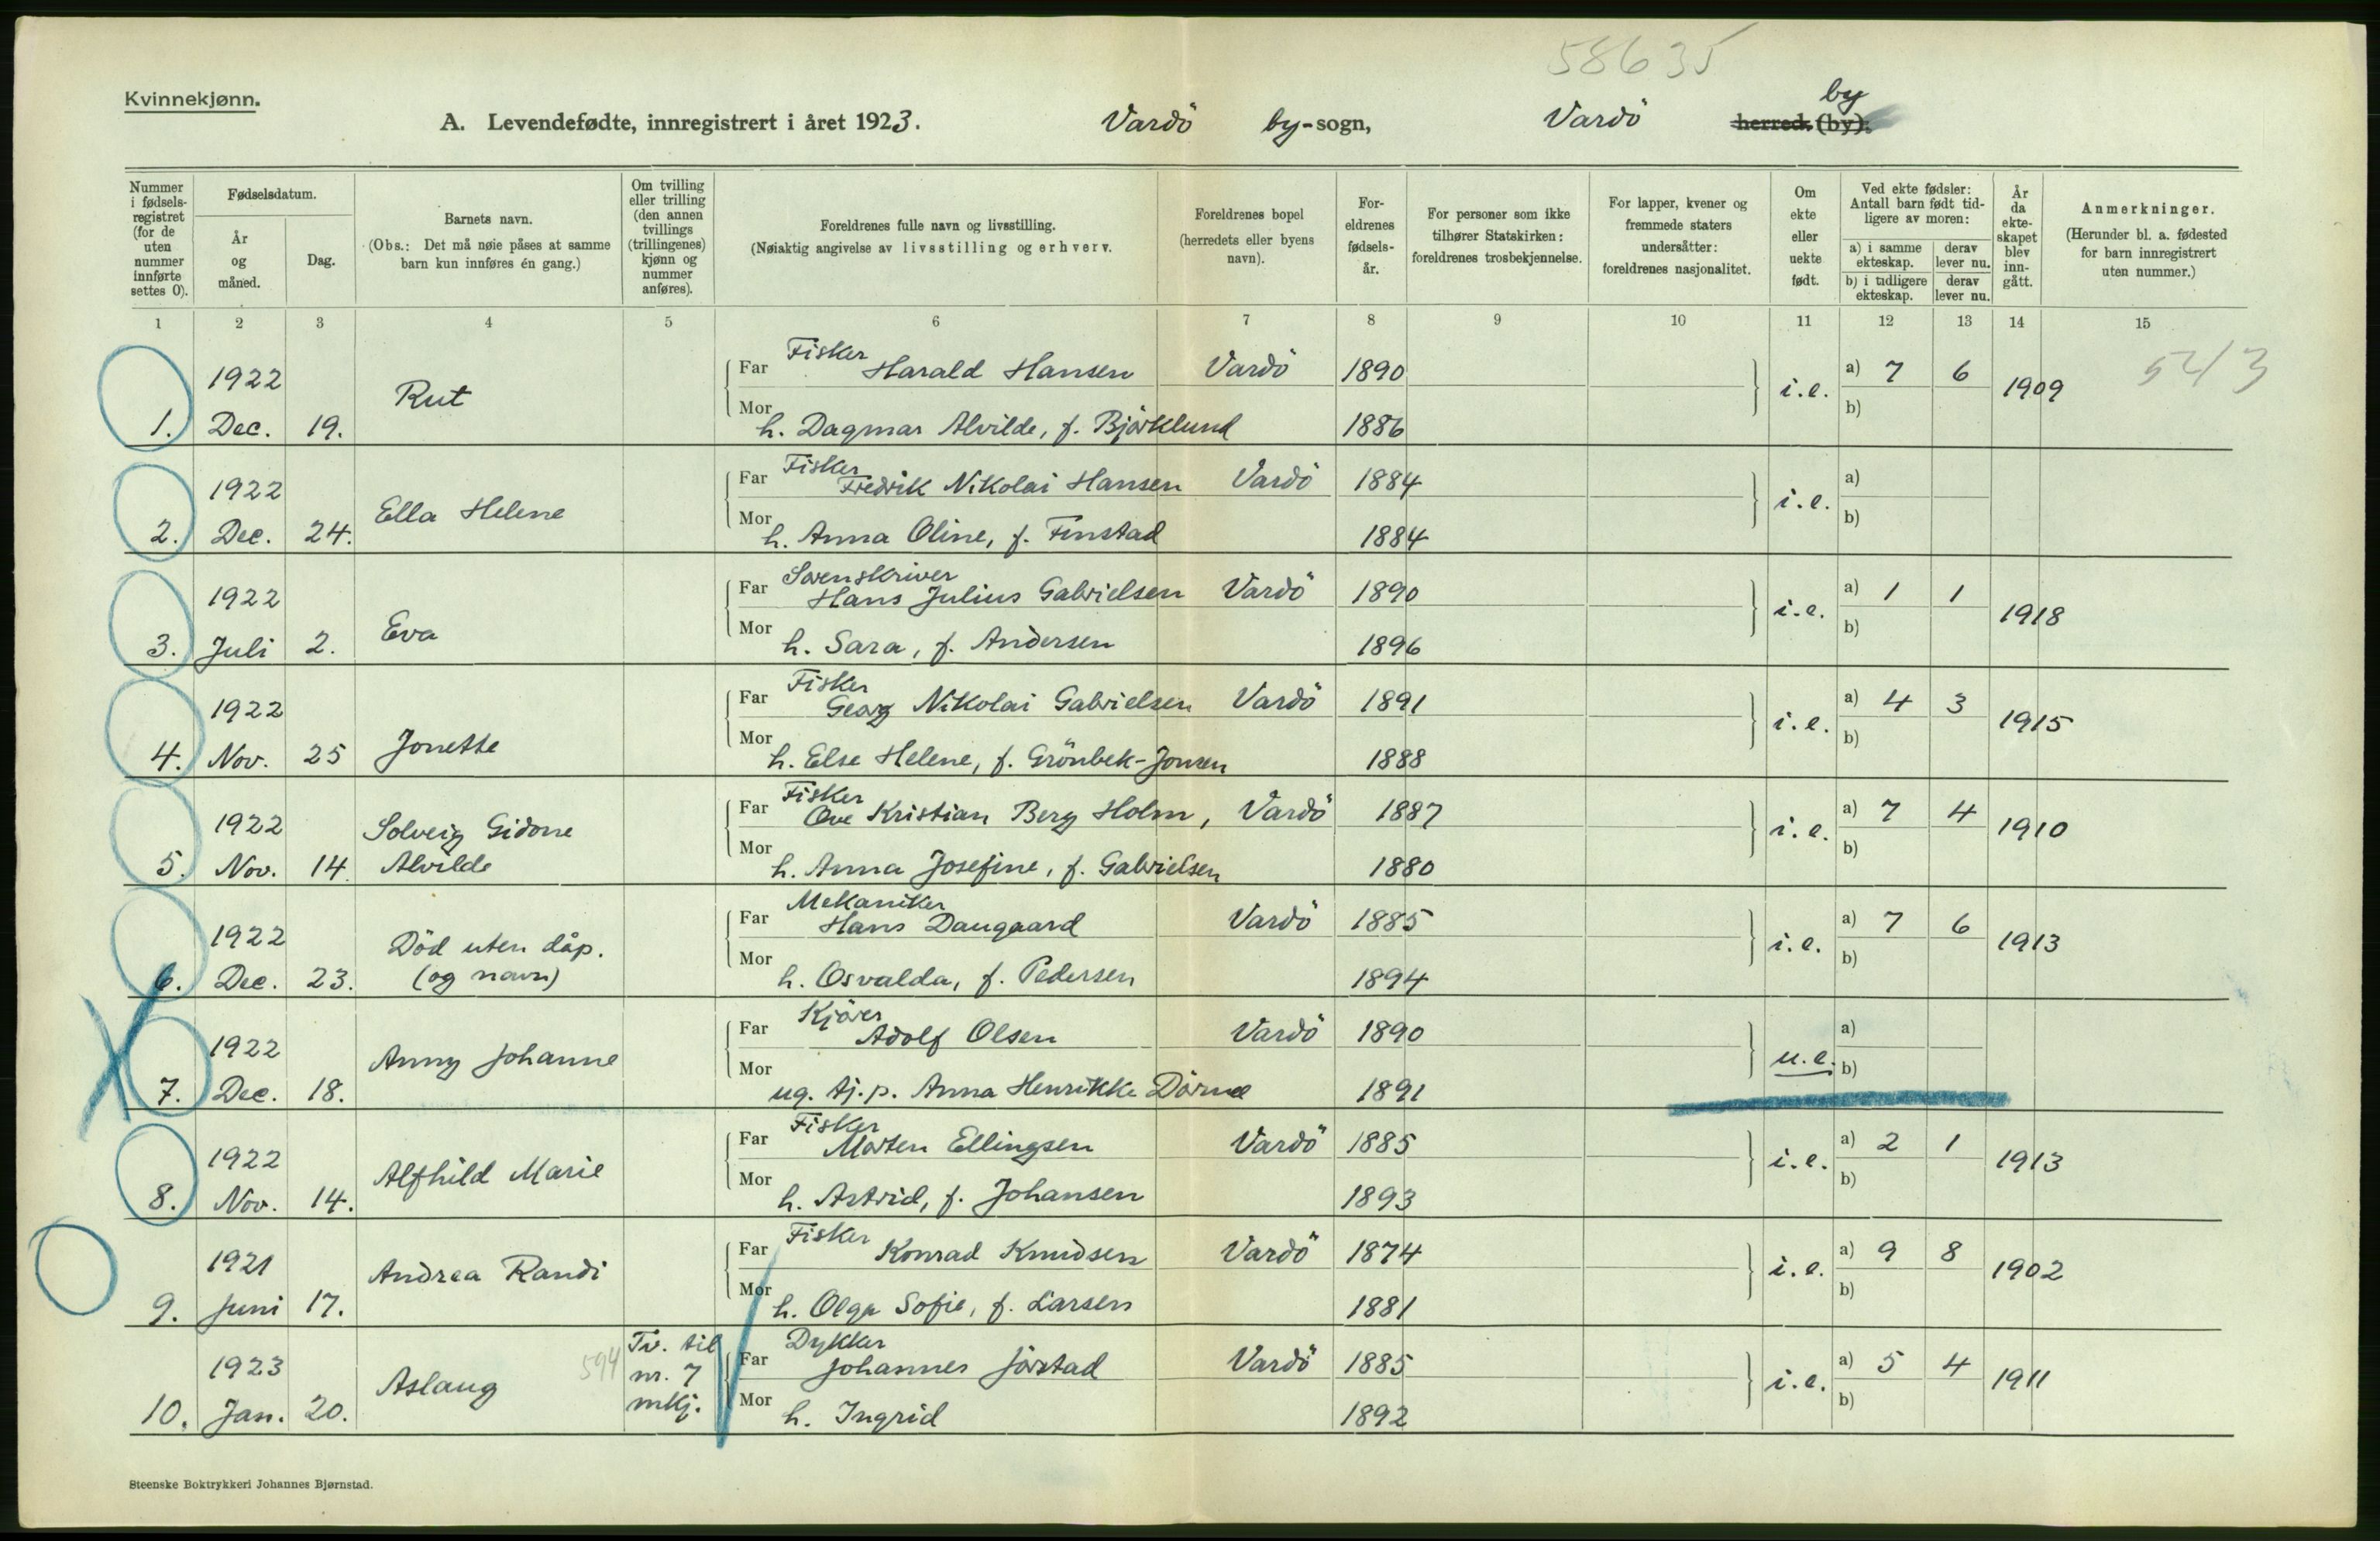 58635
Kvinnekjønn.
A. Levendefødte, innregistrert i året 1923. Vardö by-sogn, Vardö herred (by). by
Nummer i fødselsregistret (for de uten nummer innførte settes 0).
Fødselsdatum.
År og måned.
Dag.
Barnets navn.
(Obs.: Det må nøie påses at samme barn kun innføres én gang.)
Om tvilling eller trilling (den annen tvillings (trillingenes) kjønn og nummer anføres).
Foreldrenes fulle navn og livsstilling.
(Nøiaktig angivelse av livsstilling og erhverv.
Foreldrenes bopel (herredets eller byens navn).
Foreldrenes fødselsår.
For personer som ikke tilhører Statskirken: foreldrenes trosbekjennelse.
For lapper, kvener og fremmede staters undersåtter: foreldrenes nasjonalitet.
Om ekte eller uekte født.
Ved ekte fødsler: Antall barn født tidligere av moren:
a) i samme ekteskap. derav lever nu.
b) i tidligere ekteskap. derav lever nu.
År da ekteskapet blev inngått.
Anmerkninger.
(Herunder bl. a. fødested for barn innregistrert uten nummer.)
1 2 3 4 5 6 7 8 9 10 11 12 13 14 15
1922 Rut Far Fisker Harald Hansen Vardö 1890 i.e. a) 7 6 1909 543
1. Dec. 19. Mor h. Dagmar Alvilde, f. Björklund 1886 b)
1922 Ella Helene Far Fisker Fredrik Nikolai Hansen Vardö 1884 i.e. a)
2. Dec. 24. Mor h. Anna Oline, f. Finstad 1884 b)
1922 Eva Far Sorenskriver Hans Julius Gabrielsen Vardö 1890 i.e. a) 1 1 1918
3. Juli 2. Mor h. Sara, f. Andersen 1896 b)
1922 Jonette Far Fisker Georg Nikolai Gabrielsen Vardö 1891 i.e. a) 4 3 1915
4. Nov. 25 Mor h. Else Helene, f. Grönbek-Jonsen 1888 b)
1922 Solveig Gidone Far Fisker Ove Kristian Berg Holm, Vardö 1887 i.e. a) 7 4 1910
5. Nov. 14. Alvilde Mor h. Anna Josefine, f. Gabrielsen 1880 b)
1922 Död uten dåp. Far Mekaniker Hans Daugaard Vardö 1885 i.e. a) 7 6 1913
6. Dec. 23. (og navn) Mor h. Osvalda, f. Pedersen 1894 b)
1922 Anny Johanne Far Kjörer Adolf Olsen Vardö 1890 u.e. a)
7. Dec. 18. Mor ug. tj.p. Anna Henrikke 1891 b)
1922 Alfhild Marie Far Fisker Morten Ellingsen Vardö 1885 i.e. a) 2 1 1913
8. Nov. 14. Mor h. Astrid, f. Johansen 1893 b)
1921 Andrea Randi Far Fisker Konrad Knudsen Vardö 1874 i.e. a) 9 8 1902
9. Juni 17. Mor h. Olga Sofie, f. Larsen 1881 b)
1923 Aslaug 594 Tv. til nr. 7 mkj. Far Dykker Johannes Jörstad Vardö 1885 i.e. a) 5 4 1911
10. Jan. 20. Mor h. Ingrid 1892 b)
Steenske Boktrykkeri Johannes Bjørnstad.